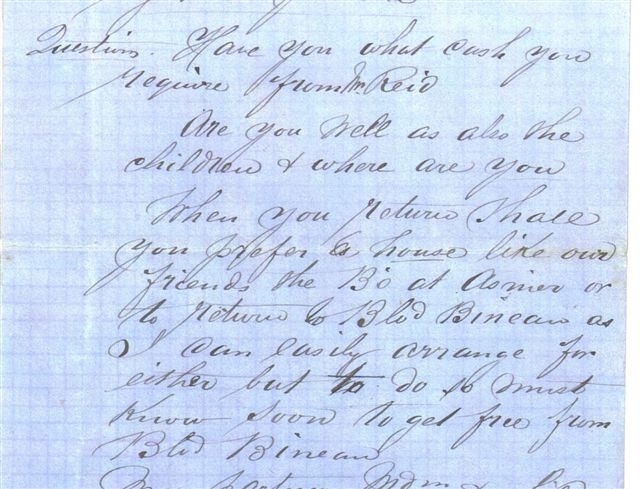 Question. Have you what cash you
require from Mr Reid
Are you well as also the
children & where are you
When you return Shall
you prefer a house like our
friends the Bs at Asnier or
to return to Blvd Bineau as
I can easily arrange for
either but to do so must
know soon to get free from
Blvd Bineau